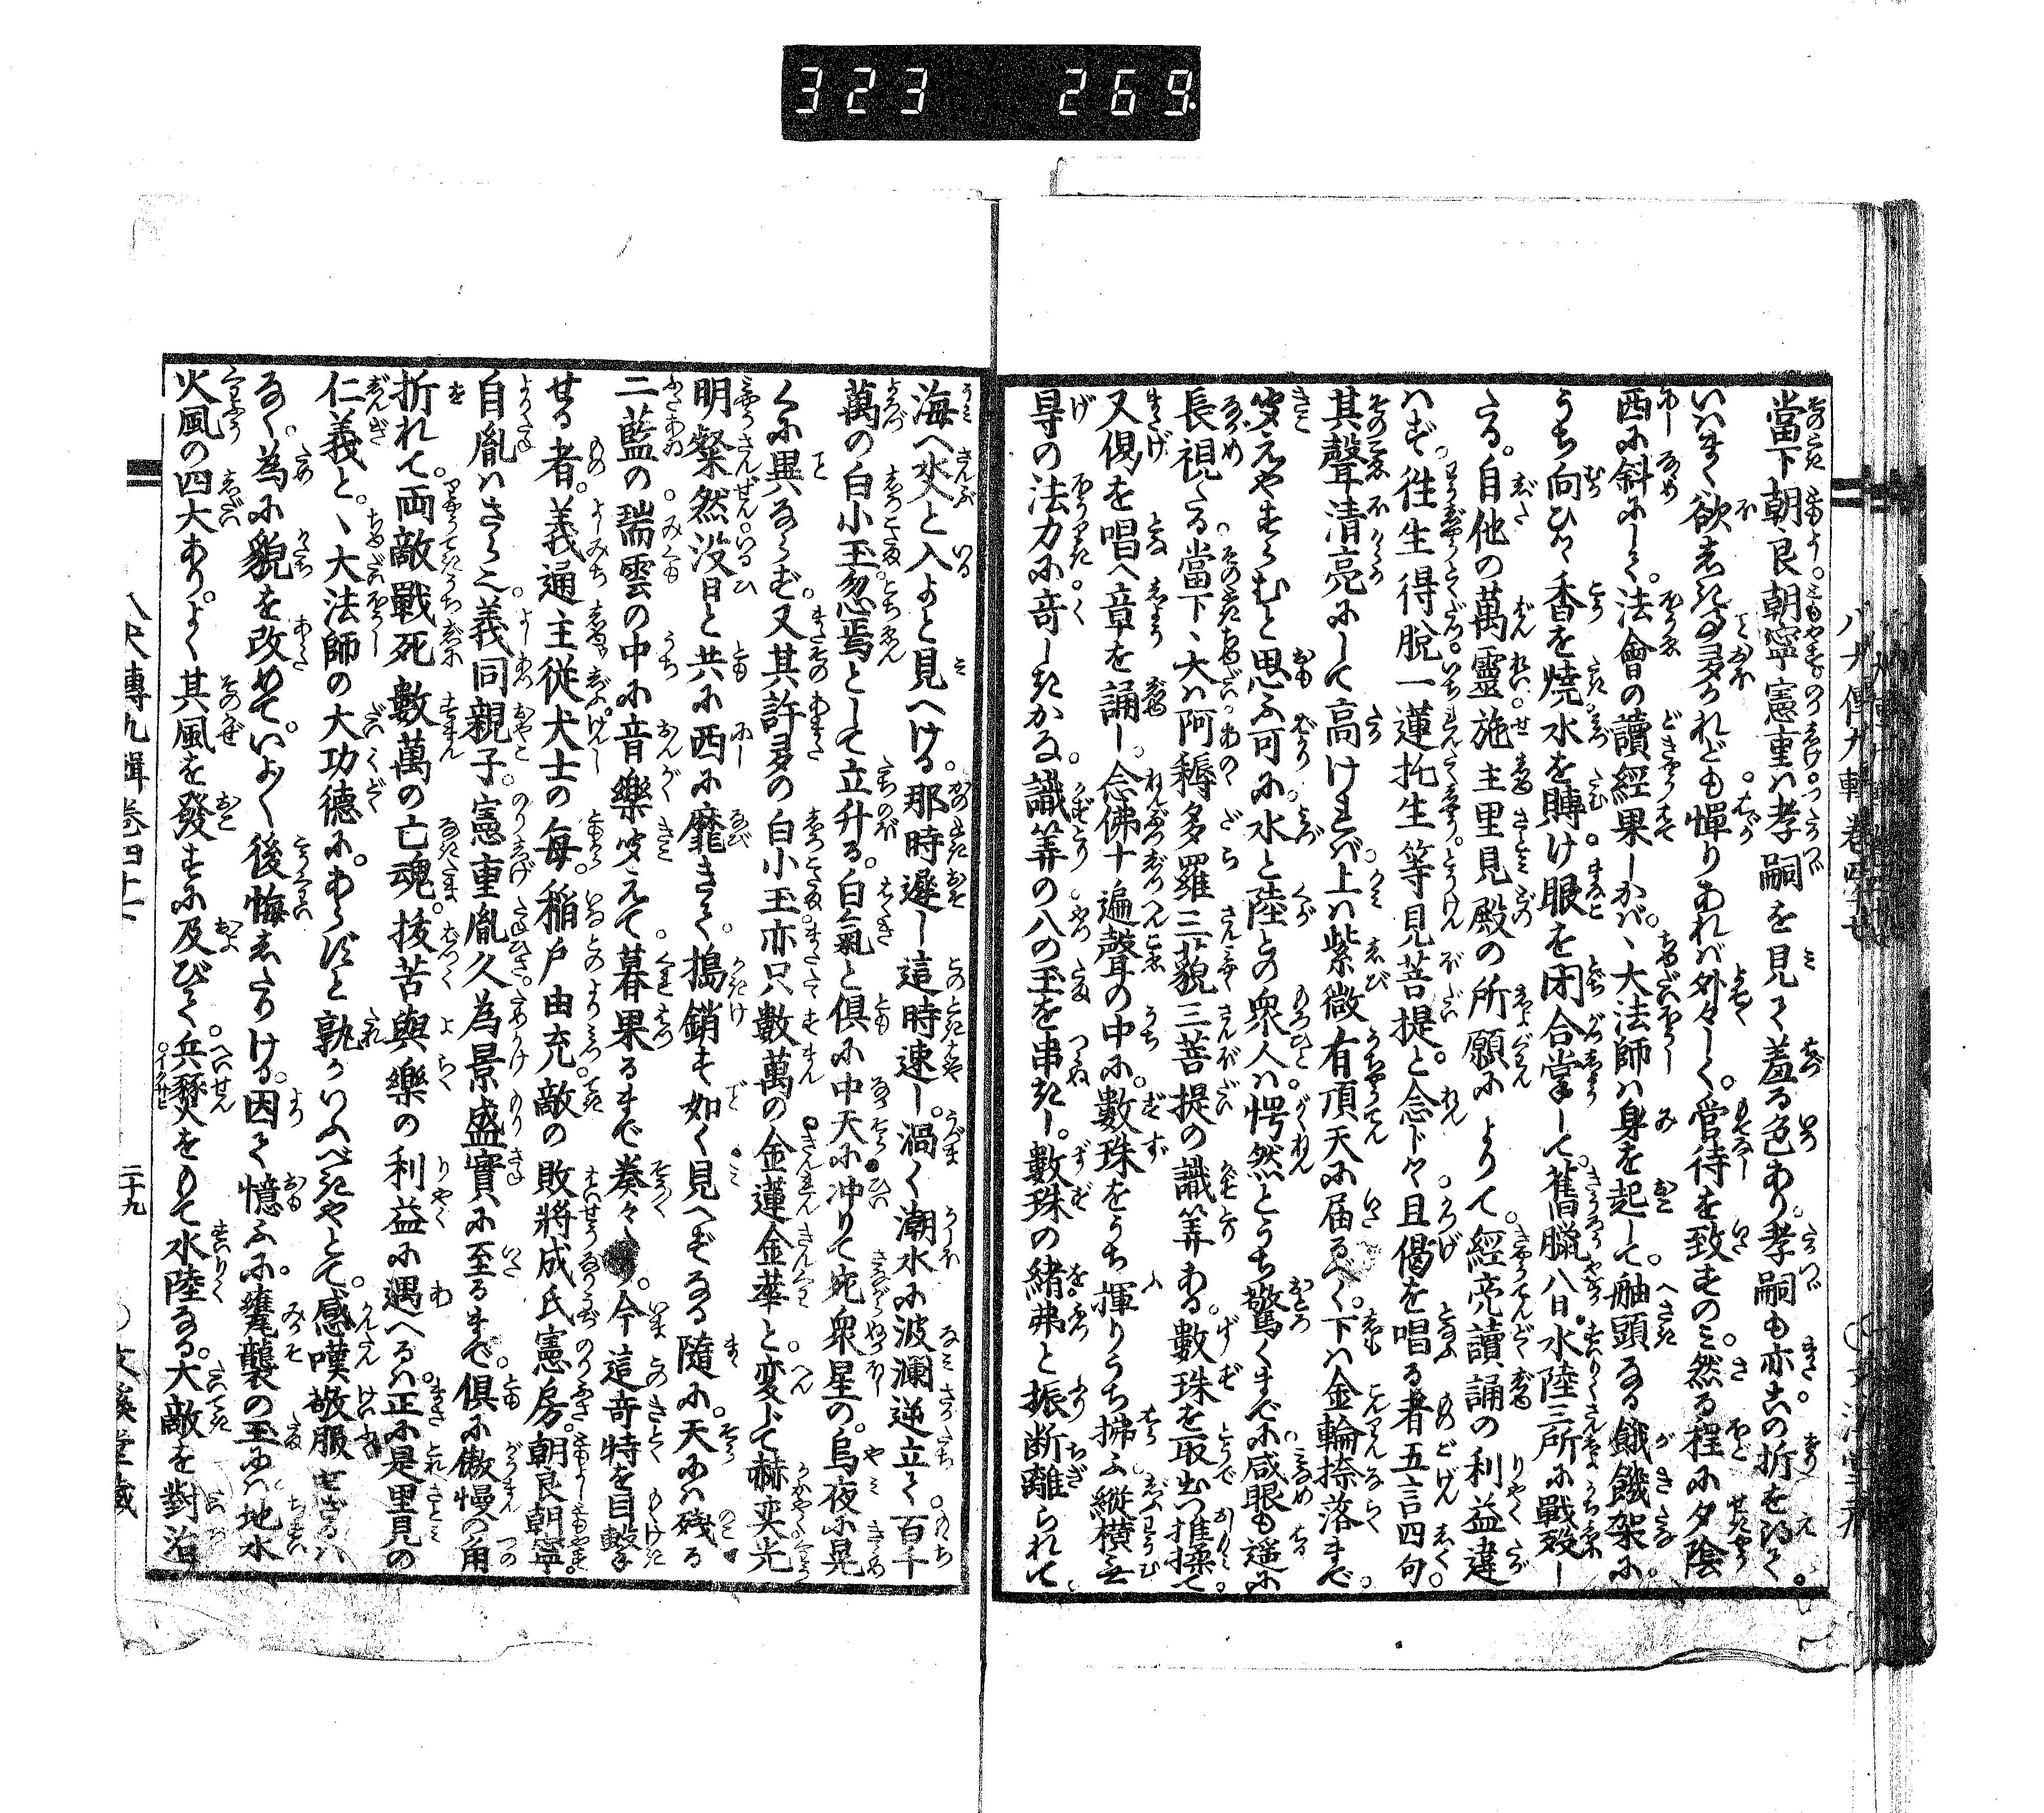 323 269
當下朝良朝寧憲重ハ孝嗣を見て羞る色あり。孝嗣も亦この折を得て。
いはまく欲しき事多かれども憚りあれバ外々しく。管待を致すのミ。然る程に夕陰
西に斜にして。法會の讀經果しかバ、大法師ハ身を起して。舳頭なる餓饑架に。
うち向ひて香を燒水を賻け眼を閉合掌して。舊臘八日水陸三所に戰歿し
たる。自他の萬靈施主里見殿の所願によりて。經寃讀誦の利益違
ハず。徃生得脱一蓮托生等見菩提と念じて且偈を唱る者五言四句
其聲清亮にして高けれバ。上ハ紫微有頂天に届るべく。下ハ金輪捺落まで。
聞えやすらむと思ふ可に。水と陸との衆人ハ。愕然とうち驚くまでに咸眼も遥に
長視たる。當下、大ハ阿耨多羅三藐三菩提の識筭ある。數珠を取出つ推揉て
又偈を唱へ章を誦し。念佛十遍聲の中に。數珠をうち揮りうち拂ふ縱横無
㝵の法力に竒しきかな。識筭の八の玉を串きし。數珠の緒弗と振断離られて
海へ㸑と入よと見へける。那時遲し這時速し。渦く潮水に波瀾逆立て百千
萬の白小玉忽焉として立升る。白氣と倶に中天に冲りて宛衆星の。烏夜に晃
くに異ならず。又其許多の白小玉亦只數萬の金蓮金華と。変じて赫奕光
明粲然沒日と共に西に靡きて。搗銷す如く見へずなる隨に。天にハ殘る
二藍の。瑞雲の中に音樂聞えて。暮果るまで奏々たり。今這竒特を目撃
せる者。義通主從犬士の毎。稲戸由充。敵の敗將成氏憲房。朝良朝寧。
自胤ハさら也。義同親子。憲重胤久為景盛實に至るまで。倶に傲慢の角
折れて。両敵戰死數萬の亡魂。拔苦與樂の利益に遇へるハ。正に是里見の
仁義と。、大法師の大功德に。あらずと孰かいふべきやとて。感嘆敬服せざるハ
なく。為に貌を改めて。いよ〱後悔したりける。因て憶ふに。甕襲の玉にハ地水
火風の四大あり。よく其風を發すに及びて。兵燹をもて水陸なる。大敵を對治
八犬傳九輯巻四十七
八犬傳九輯巻四十七
二十九
文溪堂藏